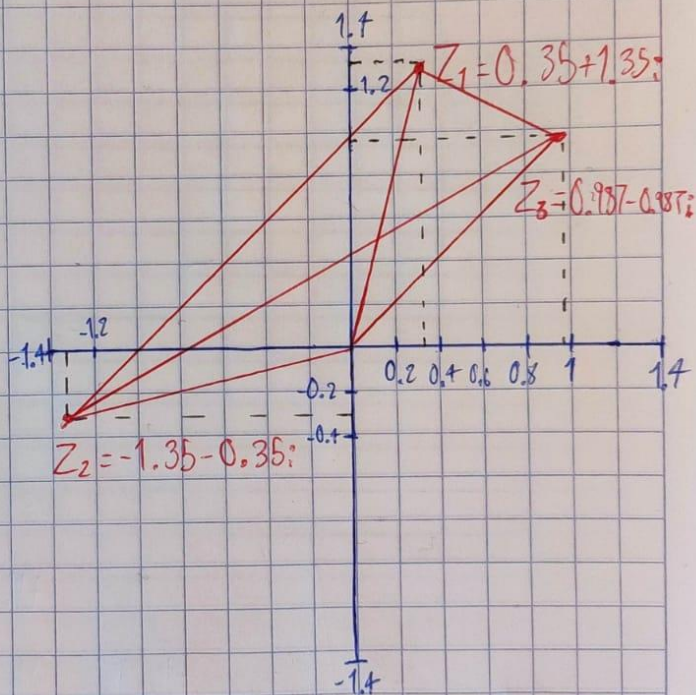 1.4
Z₁=0.35+1.35i
1.2
Z₃=0.987-0.987i
-1.2
-1.4
0.2 0.4 0.6 0.8 1 1.4
-0.2
-0.4
Z₂=-1.35-0.35i
-1.4